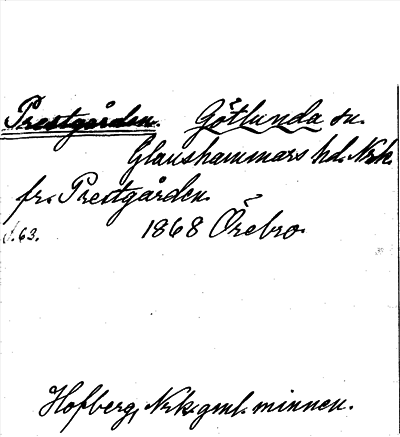 Prestgården. Götlunda sn.
Glanshammars hd. Nrk.
fr. Prestgården.
s. 63. 1868 Örebro.
Hofberg, Nrk. gml. minnen.